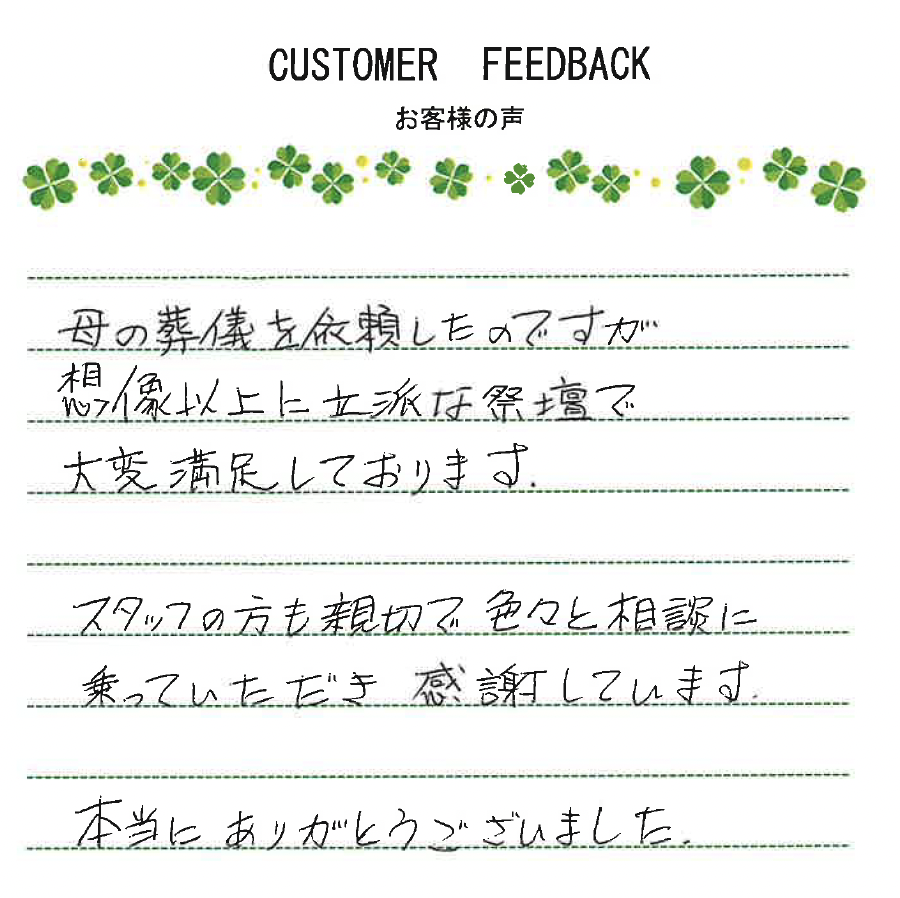 CUSTOMER FEEDBACK
お客様の声
母の葬儀を依頼したのですが
想像以上に立派な祭壇で
大変満足しております.
スタッフの方も親切で色々と相談に
乗っていただき 感謝しています.
本当にありがとうございました.